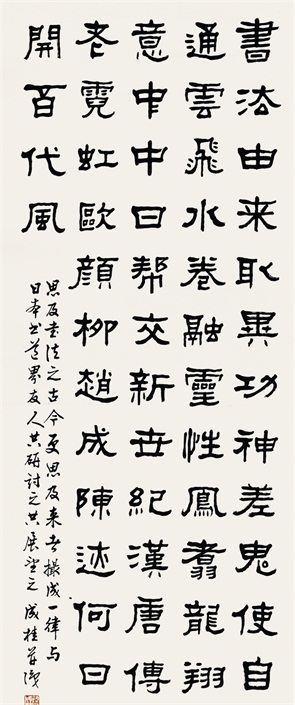 書法由来取異功神差鬼使自
通雲飛水卷融靈性鳳翥龍翔
意中中日帮交新世紀漢唐傳
老霓虹歐顏柳趙成陳迹何日
開百代風
思及書法之古今更思及来者撮成一律與
日本書道界友人共研討之共展望之 成桂并識